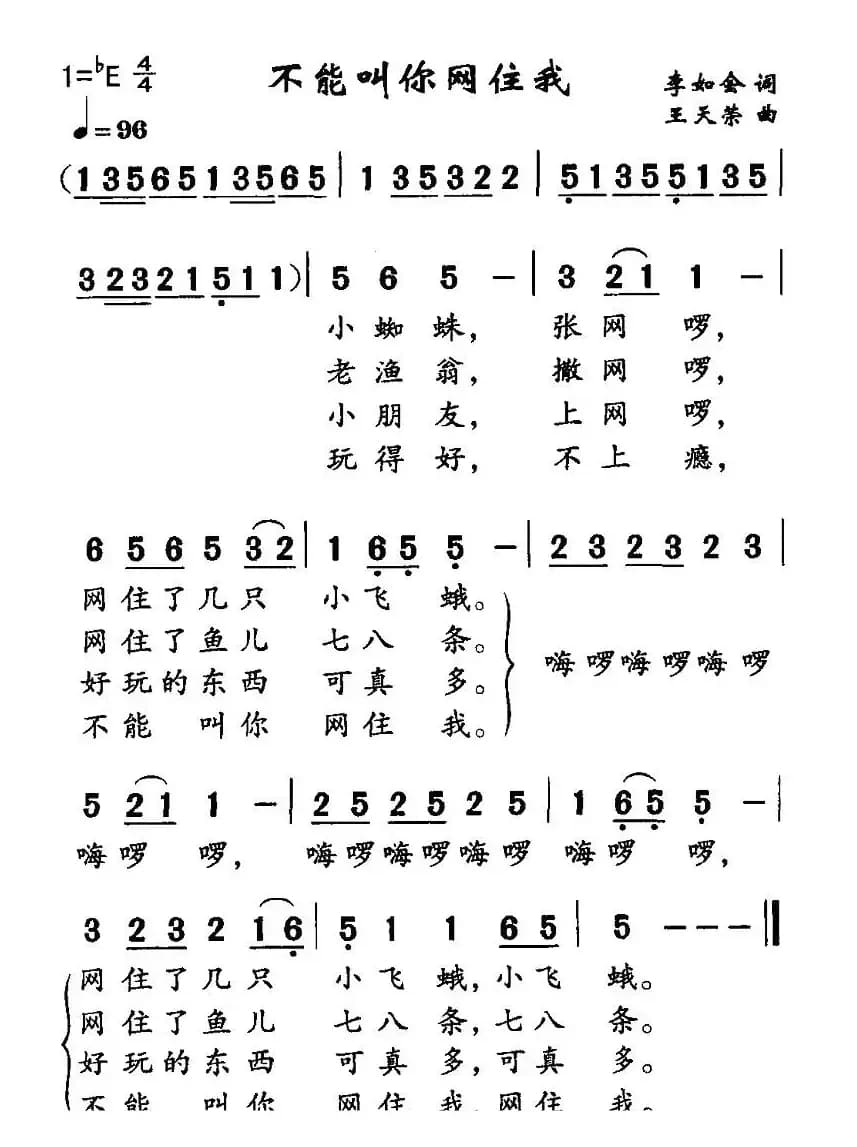 1=♭E 4/4 不能叫你网住我 李如会 词
♩=96 王天荣 曲
(1 3 5 6 5 1 3 5 6 5 | 1 3 5 3 2 2 | 5 1 3 5 5 1 3 5 |
3 2 3 2 1 5 1 1 ) | 5 6 5 - | 3 2 1 1 - |
小蜘蛛, 张网啰,
老渔翁, 撒网啰,
小朋友, 上网啰,
玩得好, 不上瘾,
6 5 6 5 3 2 | 1 6 5 5 - | 2 3 2 3 2 3 |
网住了几只 小飞蛾。
网住了鱼儿 七八条。
嗨啰嗨啰嗨啰
好玩的东西 可真多。
不能 叫你 网住我。
5 2 1 1 - | 2 5 2 5 2 5 | 1 6 5 5 - |
嗨啰 啰, 嗨啰嗨啰嗨啰 嗨啰 啰,
3 2 3 2 1 6 | 5 1 1 6 5 | 5 - - - ‖
网住了几只 小飞蛾,小飞 蛾。
网住了鱼儿 七八条,七八 条。
好玩的东西 可真多,可真 多。
不能 叫你 网住我,网住 我。